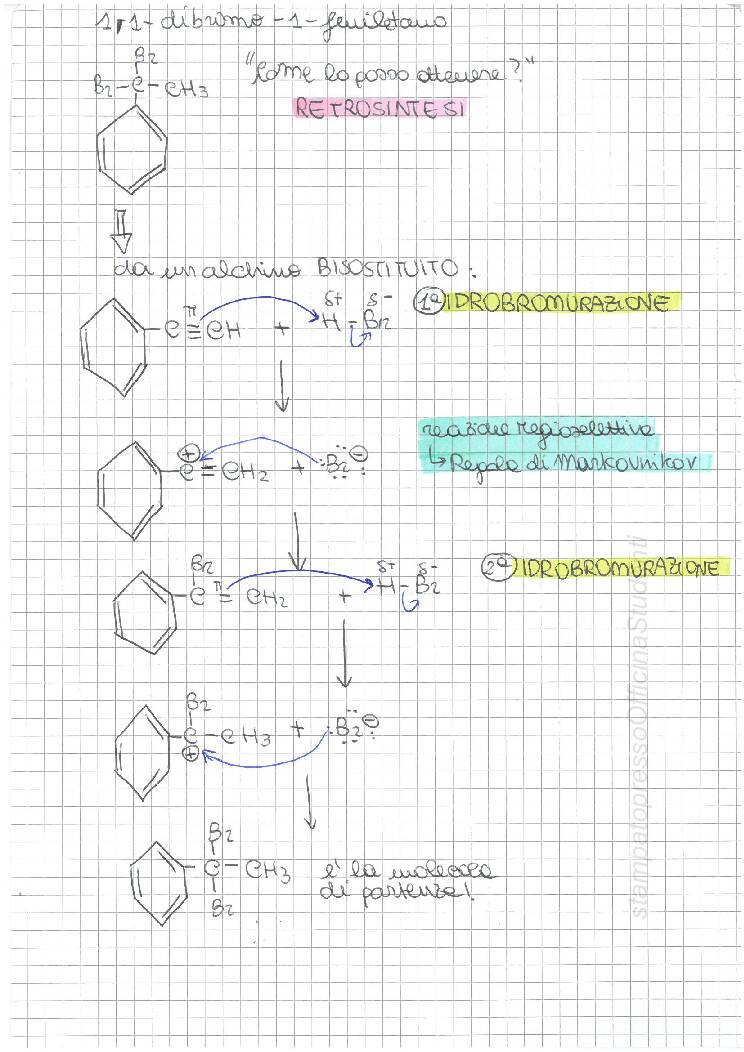 1,1-dibromo-1-feniletano
Br
Br-C-CH3
"Come lo posso ottenere?"
RETROSINTESI
da un alchino BISOSTITUITO:
π δ+ δ-
C≡CH + H-Br
1ª IDROBROMURAZIONE
⊕ ⊖
C=CH2 + :Br:
reazione regioselettiva
↳ Regola di Markovnikov
Br π δ+ δ-
C=CH2 + H-Br
2ª IDROBROMURAZIONE
Br
C-CH3 + :Br: ⊖
⊕
Br
C-CH3
Br
è la molecola
di partenza!
stampatopressoOfficinaStudenti